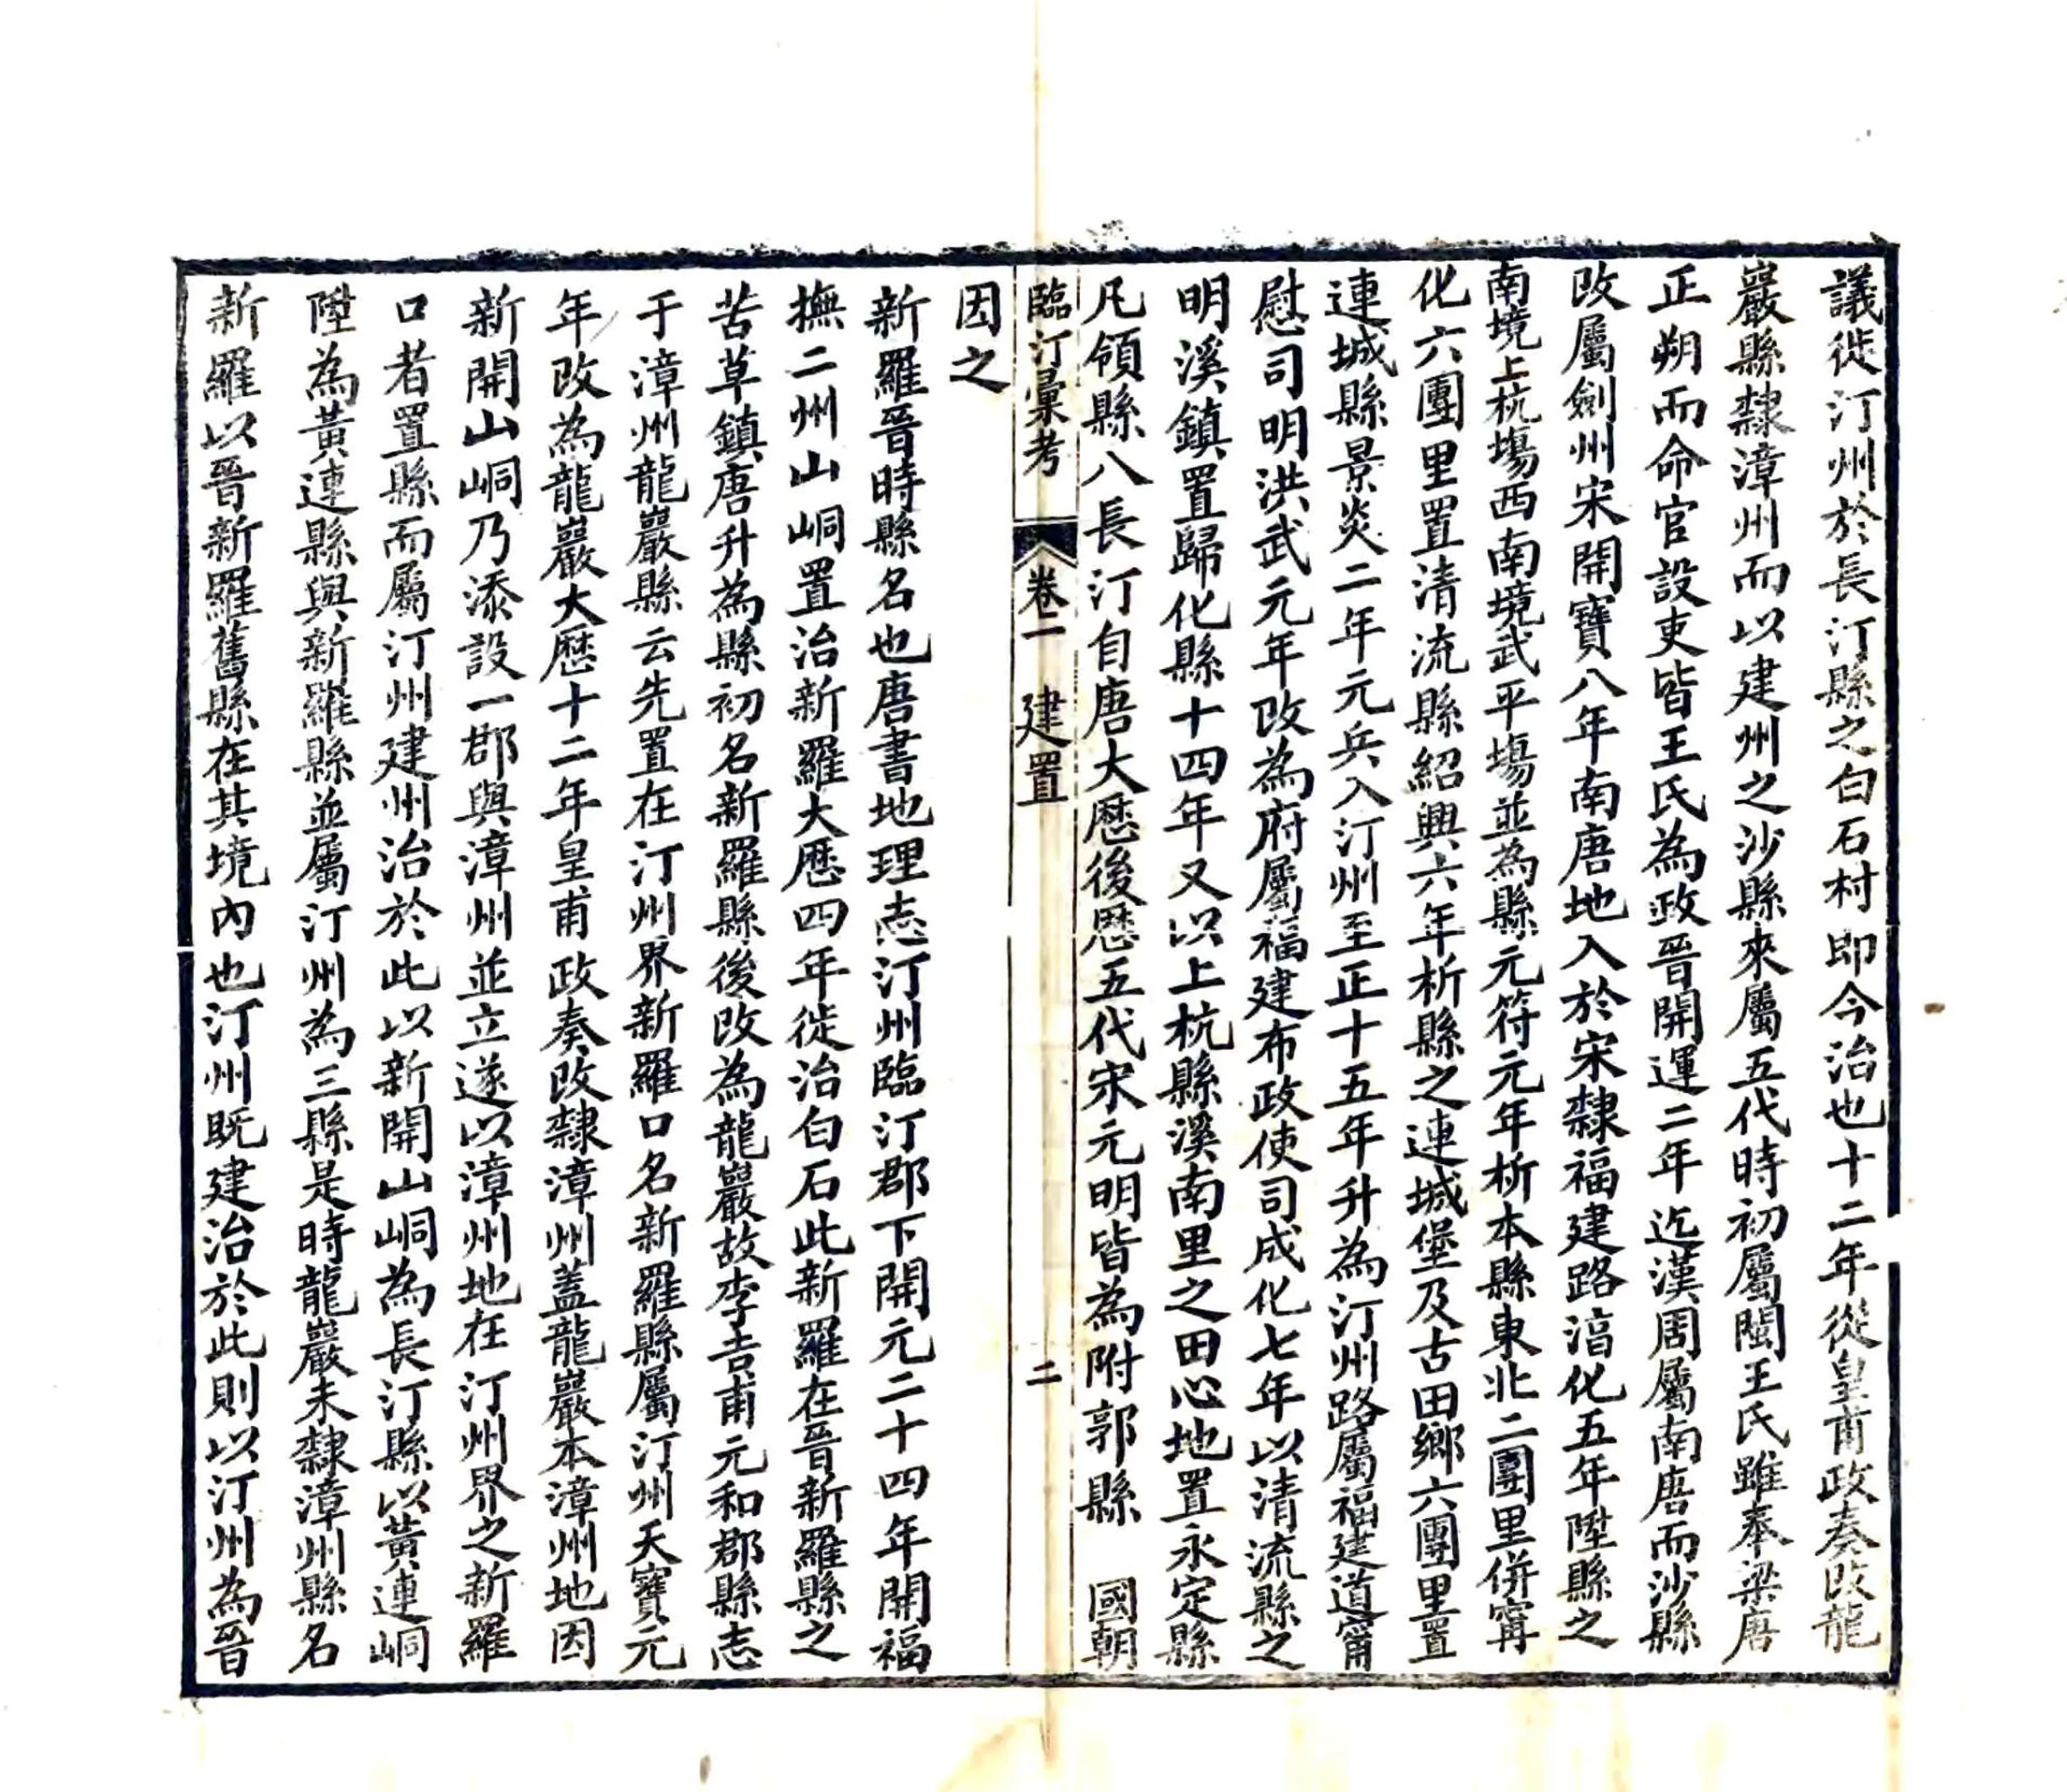 議徙汀州於長汀縣之白石村即今治也十二年從皇甫政奏改龍
巖縣隸漳州而以建州之沙縣來屬五代時初屬閩王氏雖奉梁唐
正朔而命官設吏皆王氏為政晉開運二年迄漢周屬南唐而沙縣
改屬劍州宋開寶八年南唐地入於宋隸福建路淳化五年陞縣之
南境上杭場西南境武平場並為縣元符元年析本縣東北二團里併甯
化六團里置清流縣紹興六年析縣之連城堡及古田鄉六團里置
連城縣景炎二年元兵入汀州至正十五年升為汀州路屬福建道甯
慰司明洪武元年改為府屬福建布政使司成化七年以清流縣之
明溪鎮置歸化縣十四年又以上杭縣溪南里之田心地置永定縣
凡領縣八長汀自唐大歷後歷五代宋元明皆為附郭縣　國朝
臨汀彙考　卷一　建置　二
因之
新羅晉時縣名也唐書地理志汀州臨汀郡下開元二十四年開福
撫二州山峒置治新羅大歷四年徙治白石此新羅在晉新羅縣之
苦草鎮唐升為縣初名新羅縣後改為龍巖故李吉甫元和郡縣志
于漳州龍巖縣云先置在汀州界新羅口名新羅縣屬汀州天寶元
年改為龍巖大歷十二年皇甫政奏改隸漳州蓋龍巖本漳州地因
新開山峒乃添設一郡與漳州並立遂以漳州地在汀州界之新羅
口者置縣而屬汀州建州治於此以新開山峒為長汀縣以黃連峒
陞為黃連縣與新羅縣並屬汀州為三縣是時龍巖未隸漳州縣名
新羅以晉新羅舊縣在其境內也汀州既建治於此則以汀州為晉